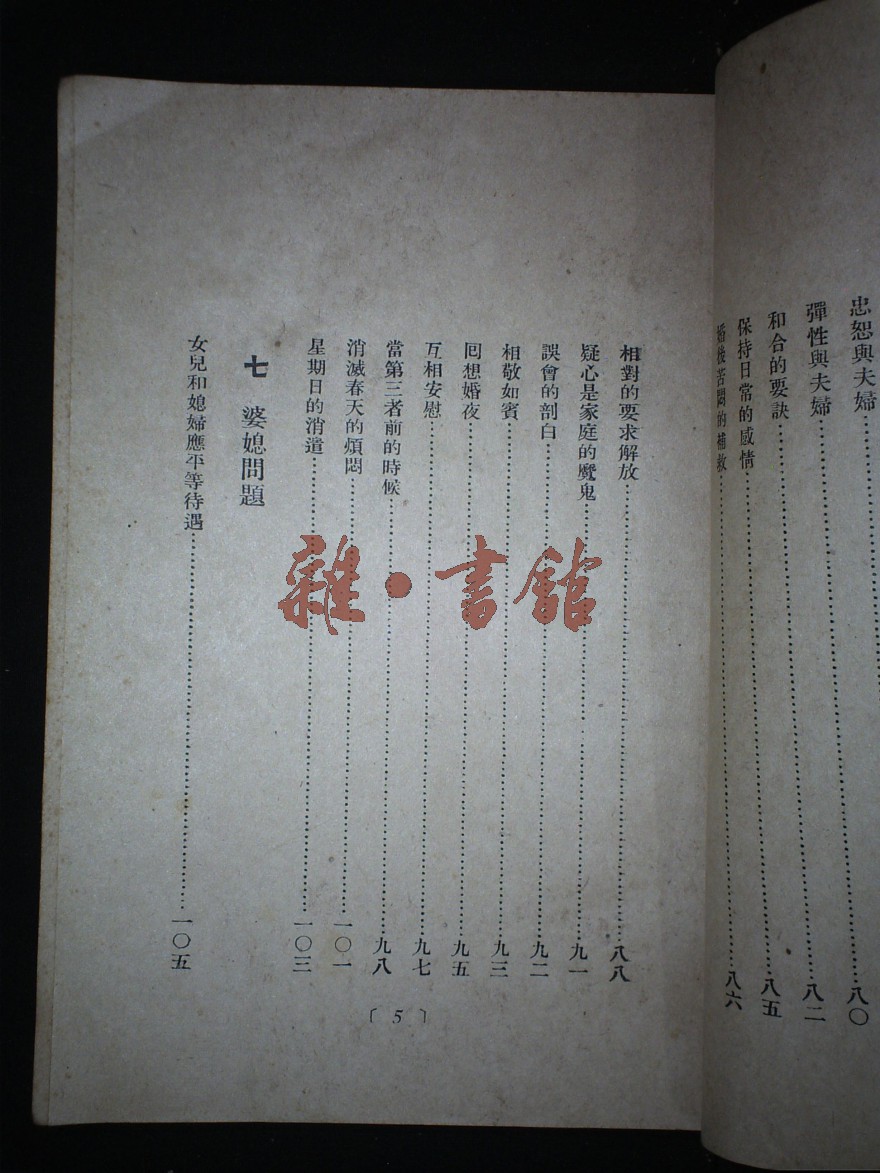 忠恕與夫婦……八〇
彈性與夫婦……八二
和合的要訣……八五
保持日常的感情
婚後苦悶的補救……八六
相對的要求解放……八八
疑心是家庭的魔鬼……九一
誤會的剖白……九二
相敬如賓……九三
囘想婚夜……九五
互相安慰……九七
當第三者前的時候……九八
消滅春天的煩悶……一〇一
星期日的消遣……一〇三
七 婆媳問題
女兒和媳婦應平等待遇……一〇五
〔5〕
雜·書館